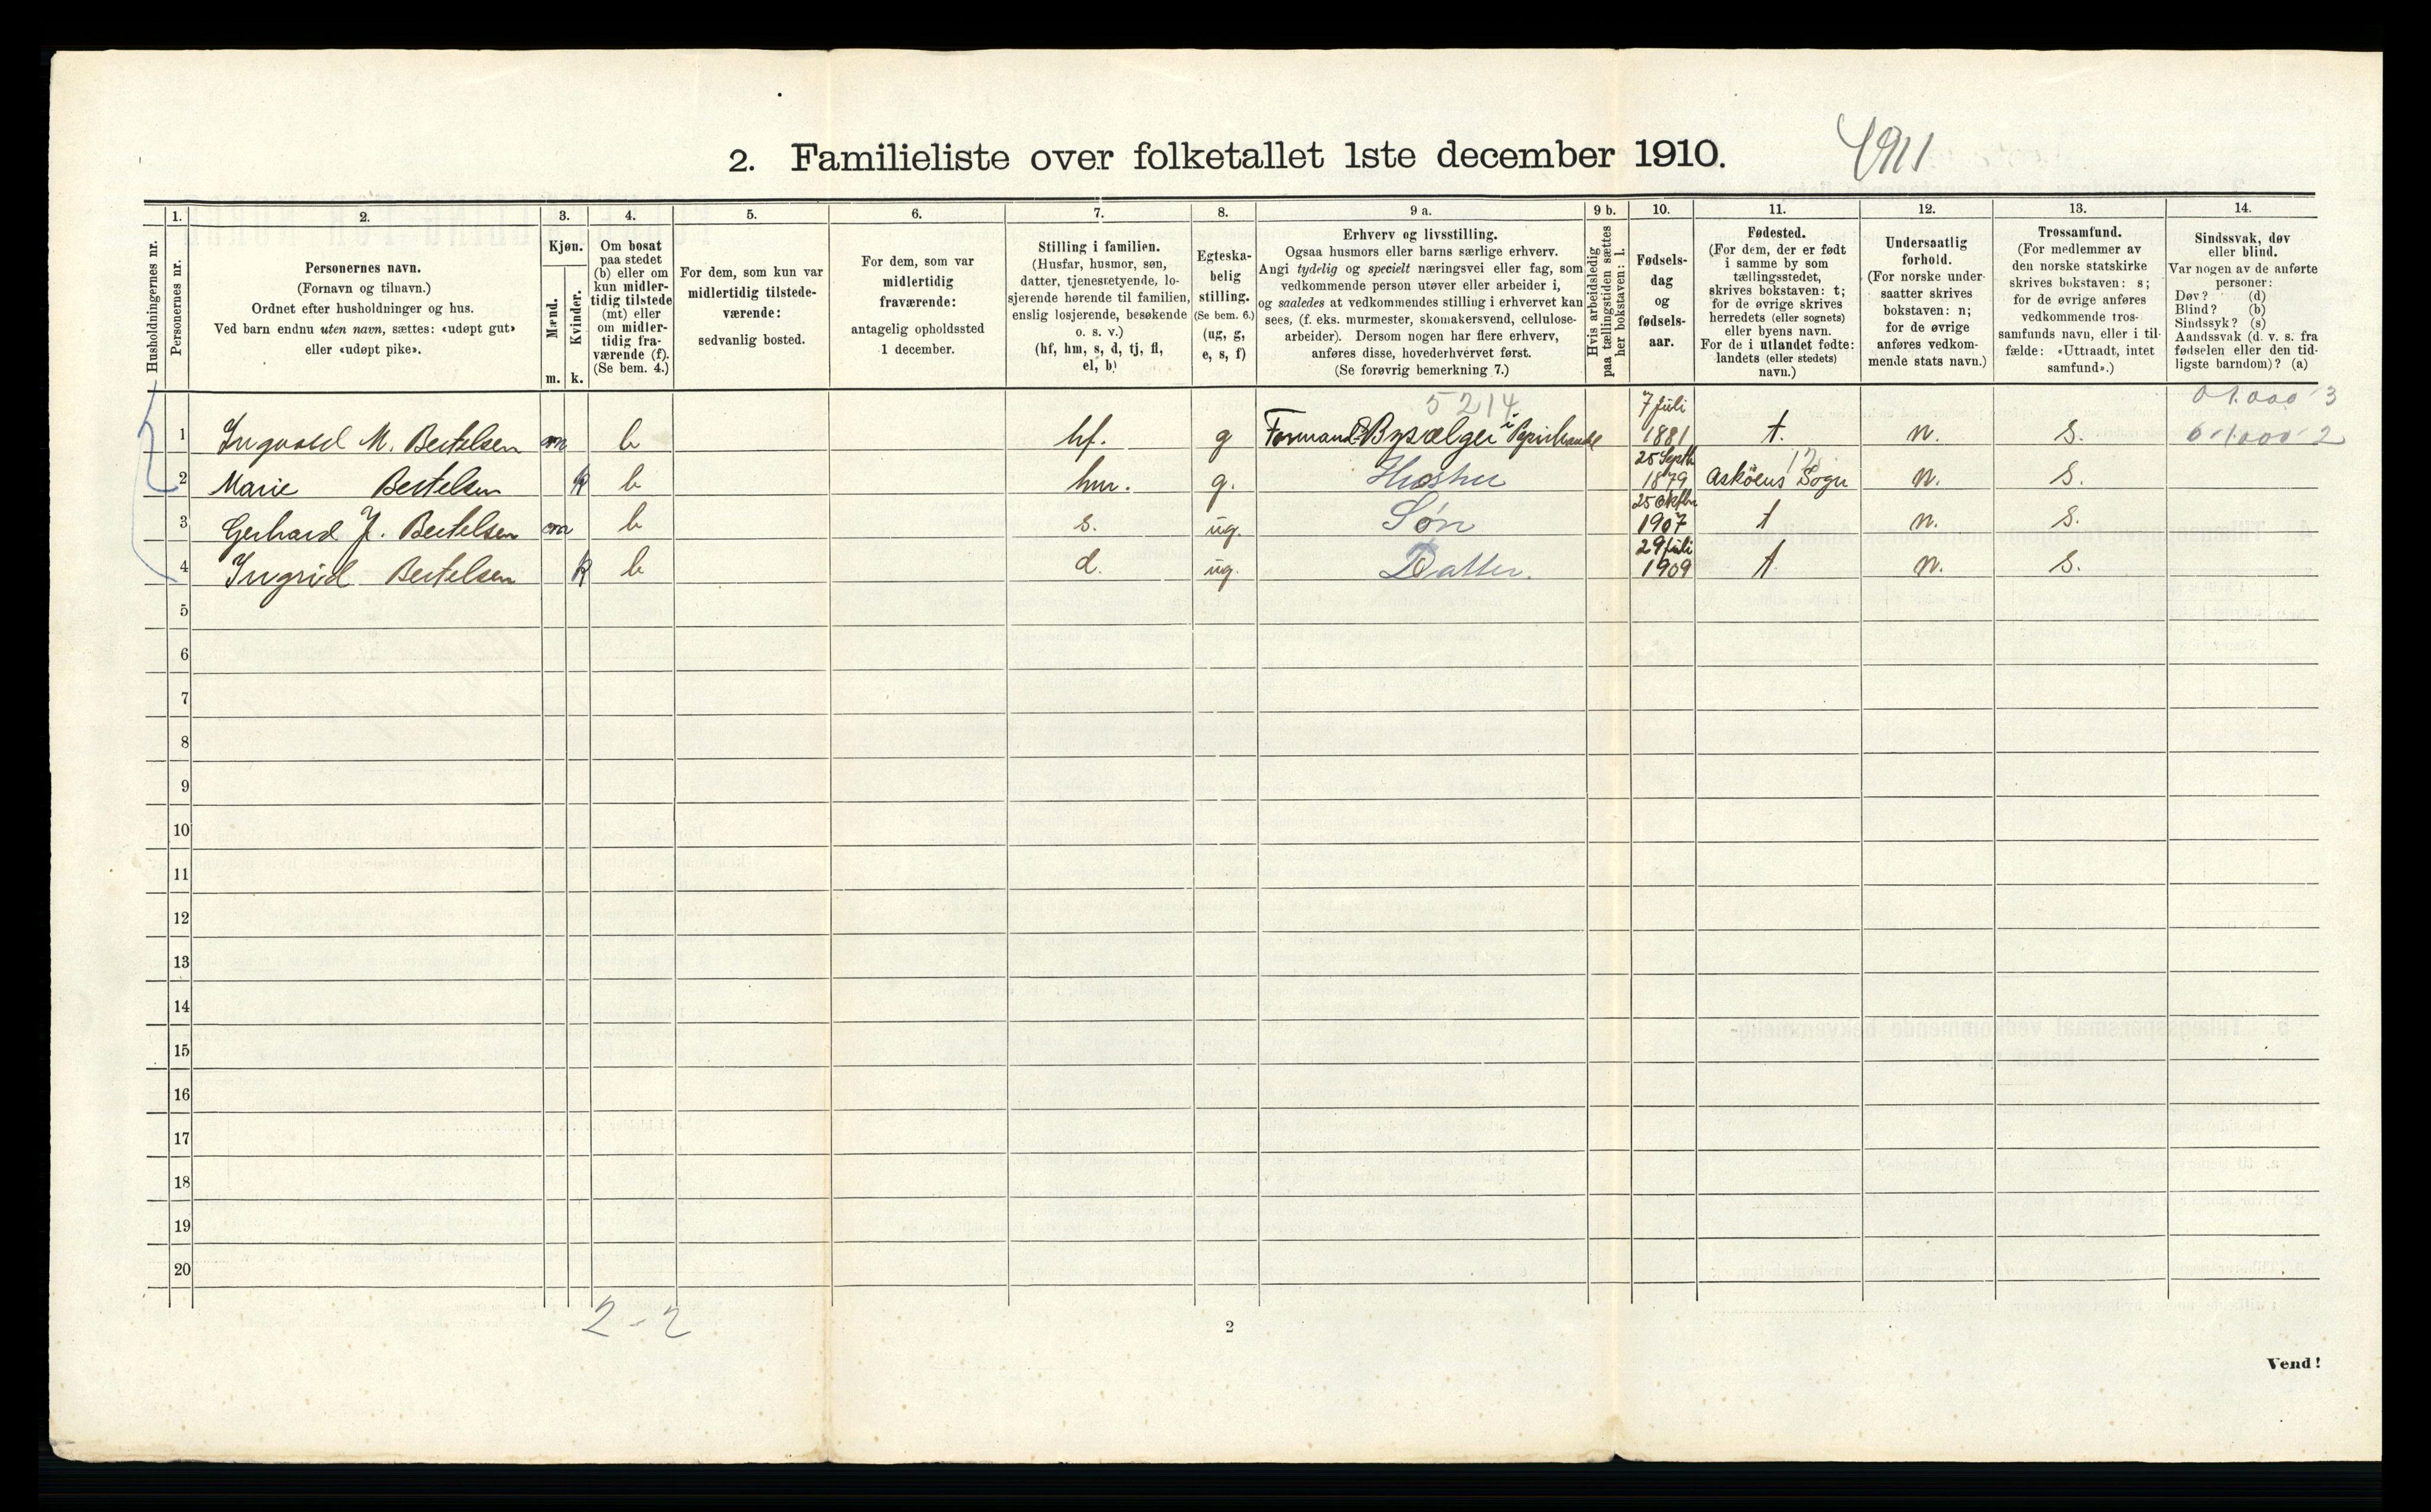 2. Familieliste over folketallet 1ste december 1910.
4911
Husholdningernes nr.
1.
Personernes nr.
2.
Personernes navn.
(Fornavn og tilnavn.)
Ordnet efter husholdninger og hus.
Ved barn endnu uten navn, sættes: «udøpt gut»
eller «udøpt pike».
3.
Kjøn.
Mænd.
Kvinder.
m. k.
4.
Om bosat
paa stedet
(b) eller om
kun midler-
tidig tilstede
(mt) eller
om midler-
tidig fra-
værende (f).
(Se bem. 4.)
5.
For dem, som kun var
midlertidig tilstede-
værende:
sedvanlig bosted.
6.
For dem, som var
midlertidig
fraværende:
antagelig opholdssted
1 december.
7.
Stilling i familien.
(Husfar, husmor, søn,
datter, tjenestetyende, lo-
sjerende hørende til familien,
enslig losjerende, besøkende
o. s. v.)
(hf, hm, s, d, tj, fl,
el, b)
8.
Egteska-
belig
stilling.
(Se bem. 6.)
(ug, g,
e, s, f)
9 a.
Erhverv og livsstilling.
Ogsaa husmors eller barns særlige erhverv.
Angi tydelig og specielt næringsvei eller fag, som
vedkommende person utøver eller arbeider i,
og saaledes at vedkommendes stilling i erhvervet kan
sees, (f. eks. murmester, skomakersvend, cellulose-
arbeider). Dersom nogen har flere erhverv,
anføres disse, hovederhvervet først.
(Se forøvrig bemerkning 7.)
9 b.
Hvis arbeidsledig
paa tællingstiden sættes
her bokstaven: l.
10.
Fødsels-
dag
og
fødsels-
aar.
11.
Fødested.
(For dem, der er født
i samme by som
tællingsstedet,
skrives bokstaven: t;
for de øvrige skrives
herredets (eller sognets)
eller byens navn.
For de i utlandet fødte:
landets (eller stedets)
navn.)
12.
Undersaatlig
forhold.
(For norske under-
saatter skrives
bokstaven: n;
for de øvrige
anføres vedkom-
mende stats navn.)
13.
Trossamfund.
(For medlemmer av
den norske statskirke
skrives bokstaven: s;
for de øvrige anføres
vedkommende tros-
samfunds navn, eller i til-
fælde: «Uttraadt, intet
samfund».)
14.
Sindssvak, døv
eller blind.
Var nogen av de anførte
personer:
Døv? (d)
Blind? (b)
Sindssyk? (s)
Aandssvak (d. v. s. fra
fødselen eller den tid-
ligste barndom)? (a)
5214 7 juli 01.000 3
1 Ingvald M. Bertelsen m b hf. g Formand 1881 t. n. s. 2
25 Septb
2 Marie Bertelsen k b hm. g. Hustru 1879 Asköens Sogn n. s.
25 Oktbr
3 Gerhard J. Bertelsen m b s. ug. Søn 1907 t n. s.
29 juli
4 Ingrid Bertelsen k b d. ug. Datter. 1909 t n. s.
5
6
7
8
9
10
11
12
13
14
15
16
17
18
19
20
2-2
2
Vend!